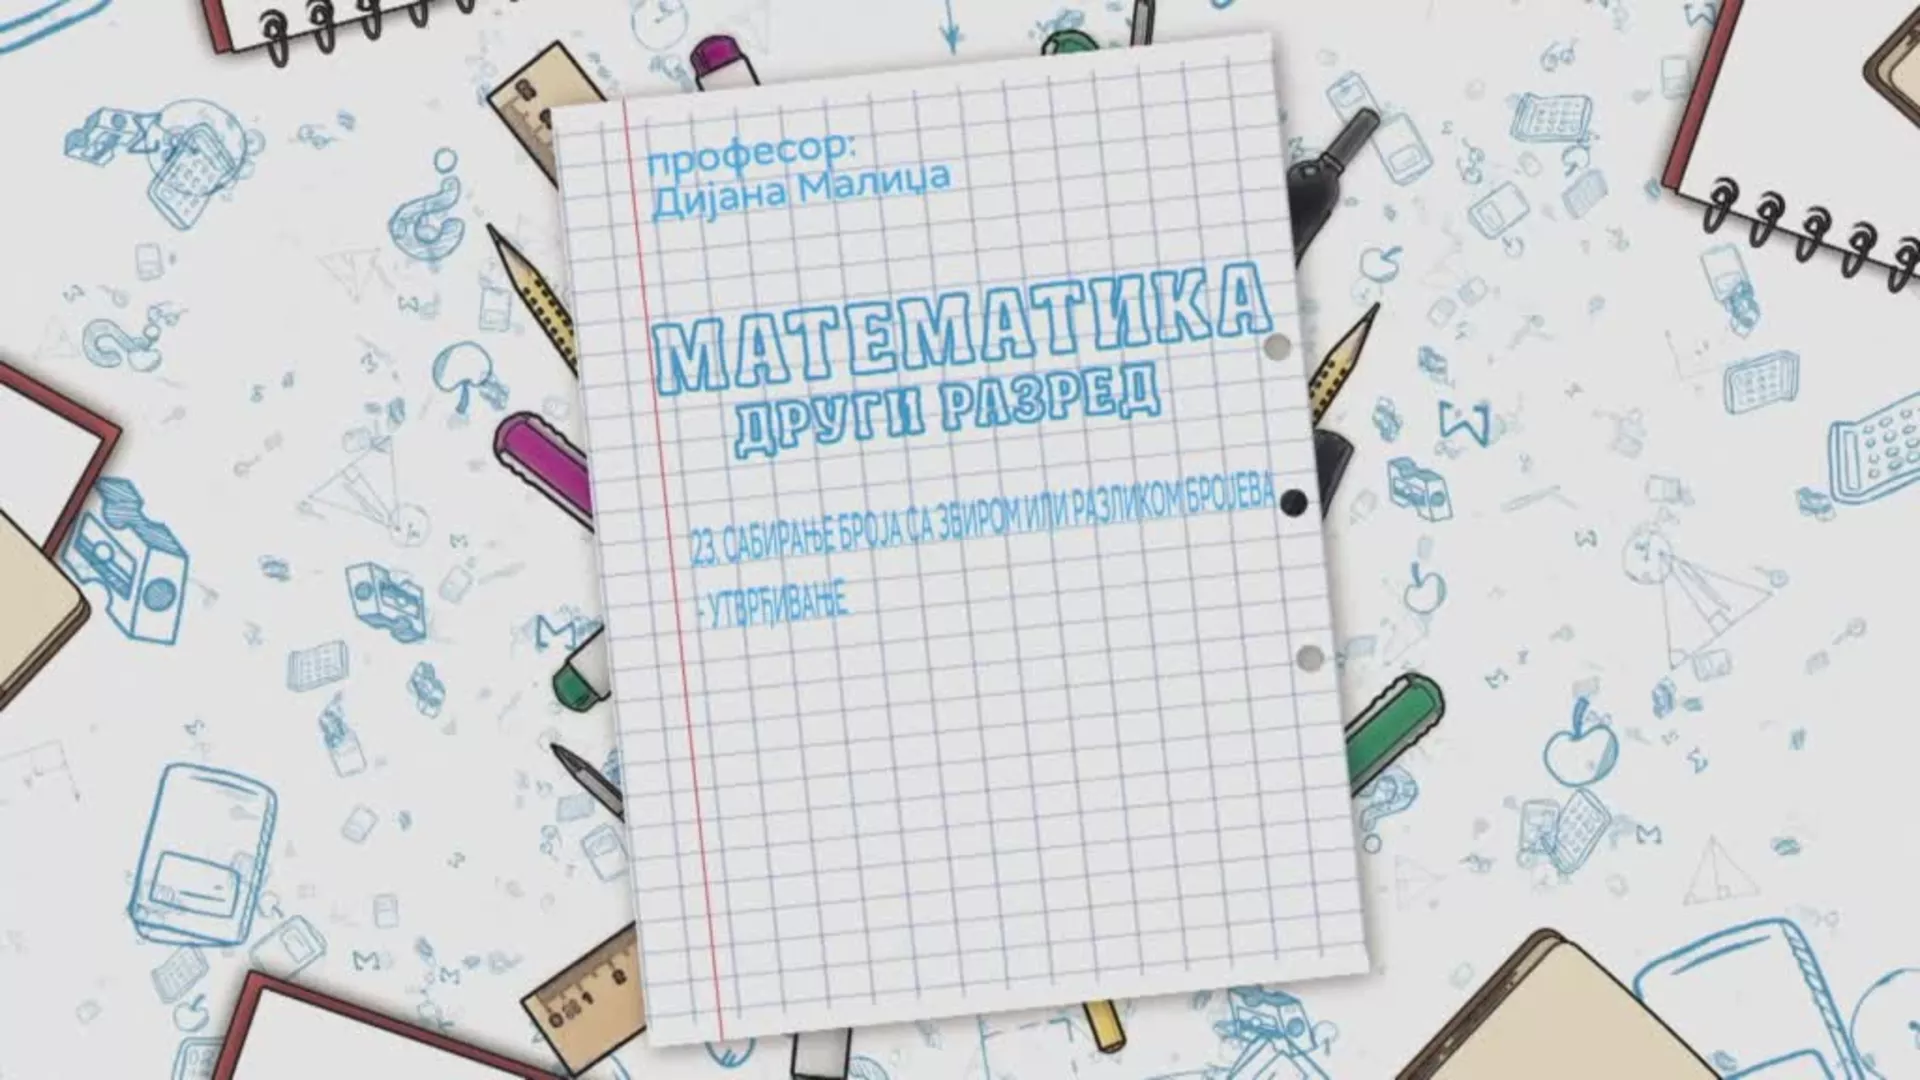 професор:
Дијана Малиџа
МАТЕМАТИКА
ДРУГИ РАЗРЕД
23. САБИРАЊЕ БРОЈА СА ЗБИРОМ ИЛИ РАЗЛИКОМ БРОЈЕВА
- УТВРЂИВАЊЕ